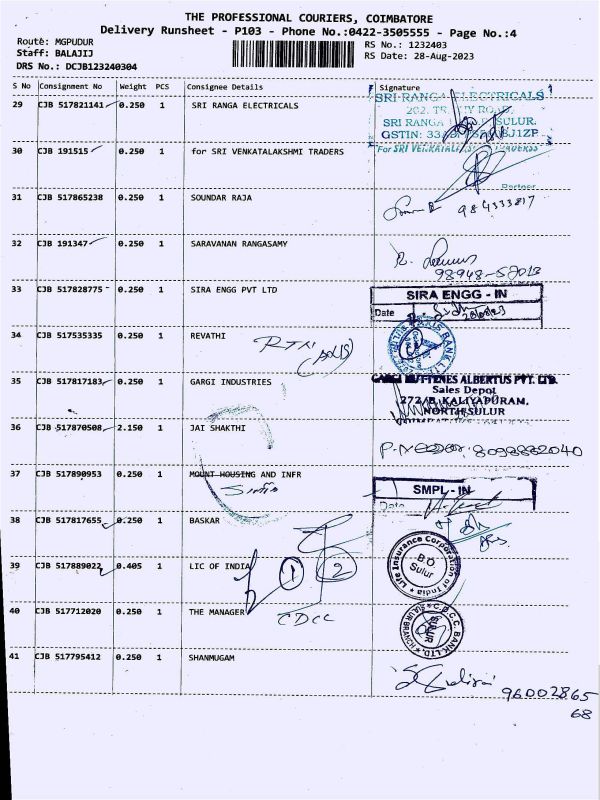 THE PROFESSIONAL COURIERS, COIMBATORE
Delivery Runsheet - P103 - Phone No.:0422-3505555 - Page No.:4
Route: MGPUDUR
RS No.: 1232403
Staff: BALAJIJ
RS Date: 28-Aug-2023
DRS No.: DCJB123240304
S No Consignment No Weight PCS Consignee Details Signature
29 CJB 517821141 0.250 1 SRI RANGA ELECTRICALS
SRI RANGA ELECTRICALS
202, ROAD,
SRI RANGA SULUR.
GSTIN: 33
30 CJB 191515 0.250 1 for SRI VENKATALAKSHMI TRADERS
For SRI VENKATALAKSHMI TRADERSS
Partner
31 CJB 517865238 0.250 1 SOUNDAR RAJA
984333817
32 CJB 191347 0.250 1 SARAVANAN RANGASAMY
98948-52013
33 CJB 517828775 0.250 1 SIRA ENGG PVT LTD
SIRA ENGG - IN
Date
34 CJB 517535335 0.250 1 REVATHI
RTN
AXIS BANK LTD
35 CJB 517817183 0.250 1 GARGI INDUSTRIES
GARGI HUTTENES ALBERTUS PVT. LTD.
Sales Depot
272/B, KALIYAPURAM,
NORTH SULUR
36 CJB 517870508 2.150 1 JAI SHAKTHI
37 CJB 517890953 0.250 1 MOUNT HOUSING AND INFR
SMPL - IN
Date
38 CJB 517817655 0.250 1 BASKAR
39 CJB 517889022 0.405 1 LIC OF INDIA
1 2
Life Insurance Corporation of India
B O
Sulur
40 CJB 517712020 0.250 1 THE MANAGER
CDCC
C.D.C.C. BANK LTD.
SULUR
41 CJB 517795412 0.250 1 SHANMUGAM
96002865
68